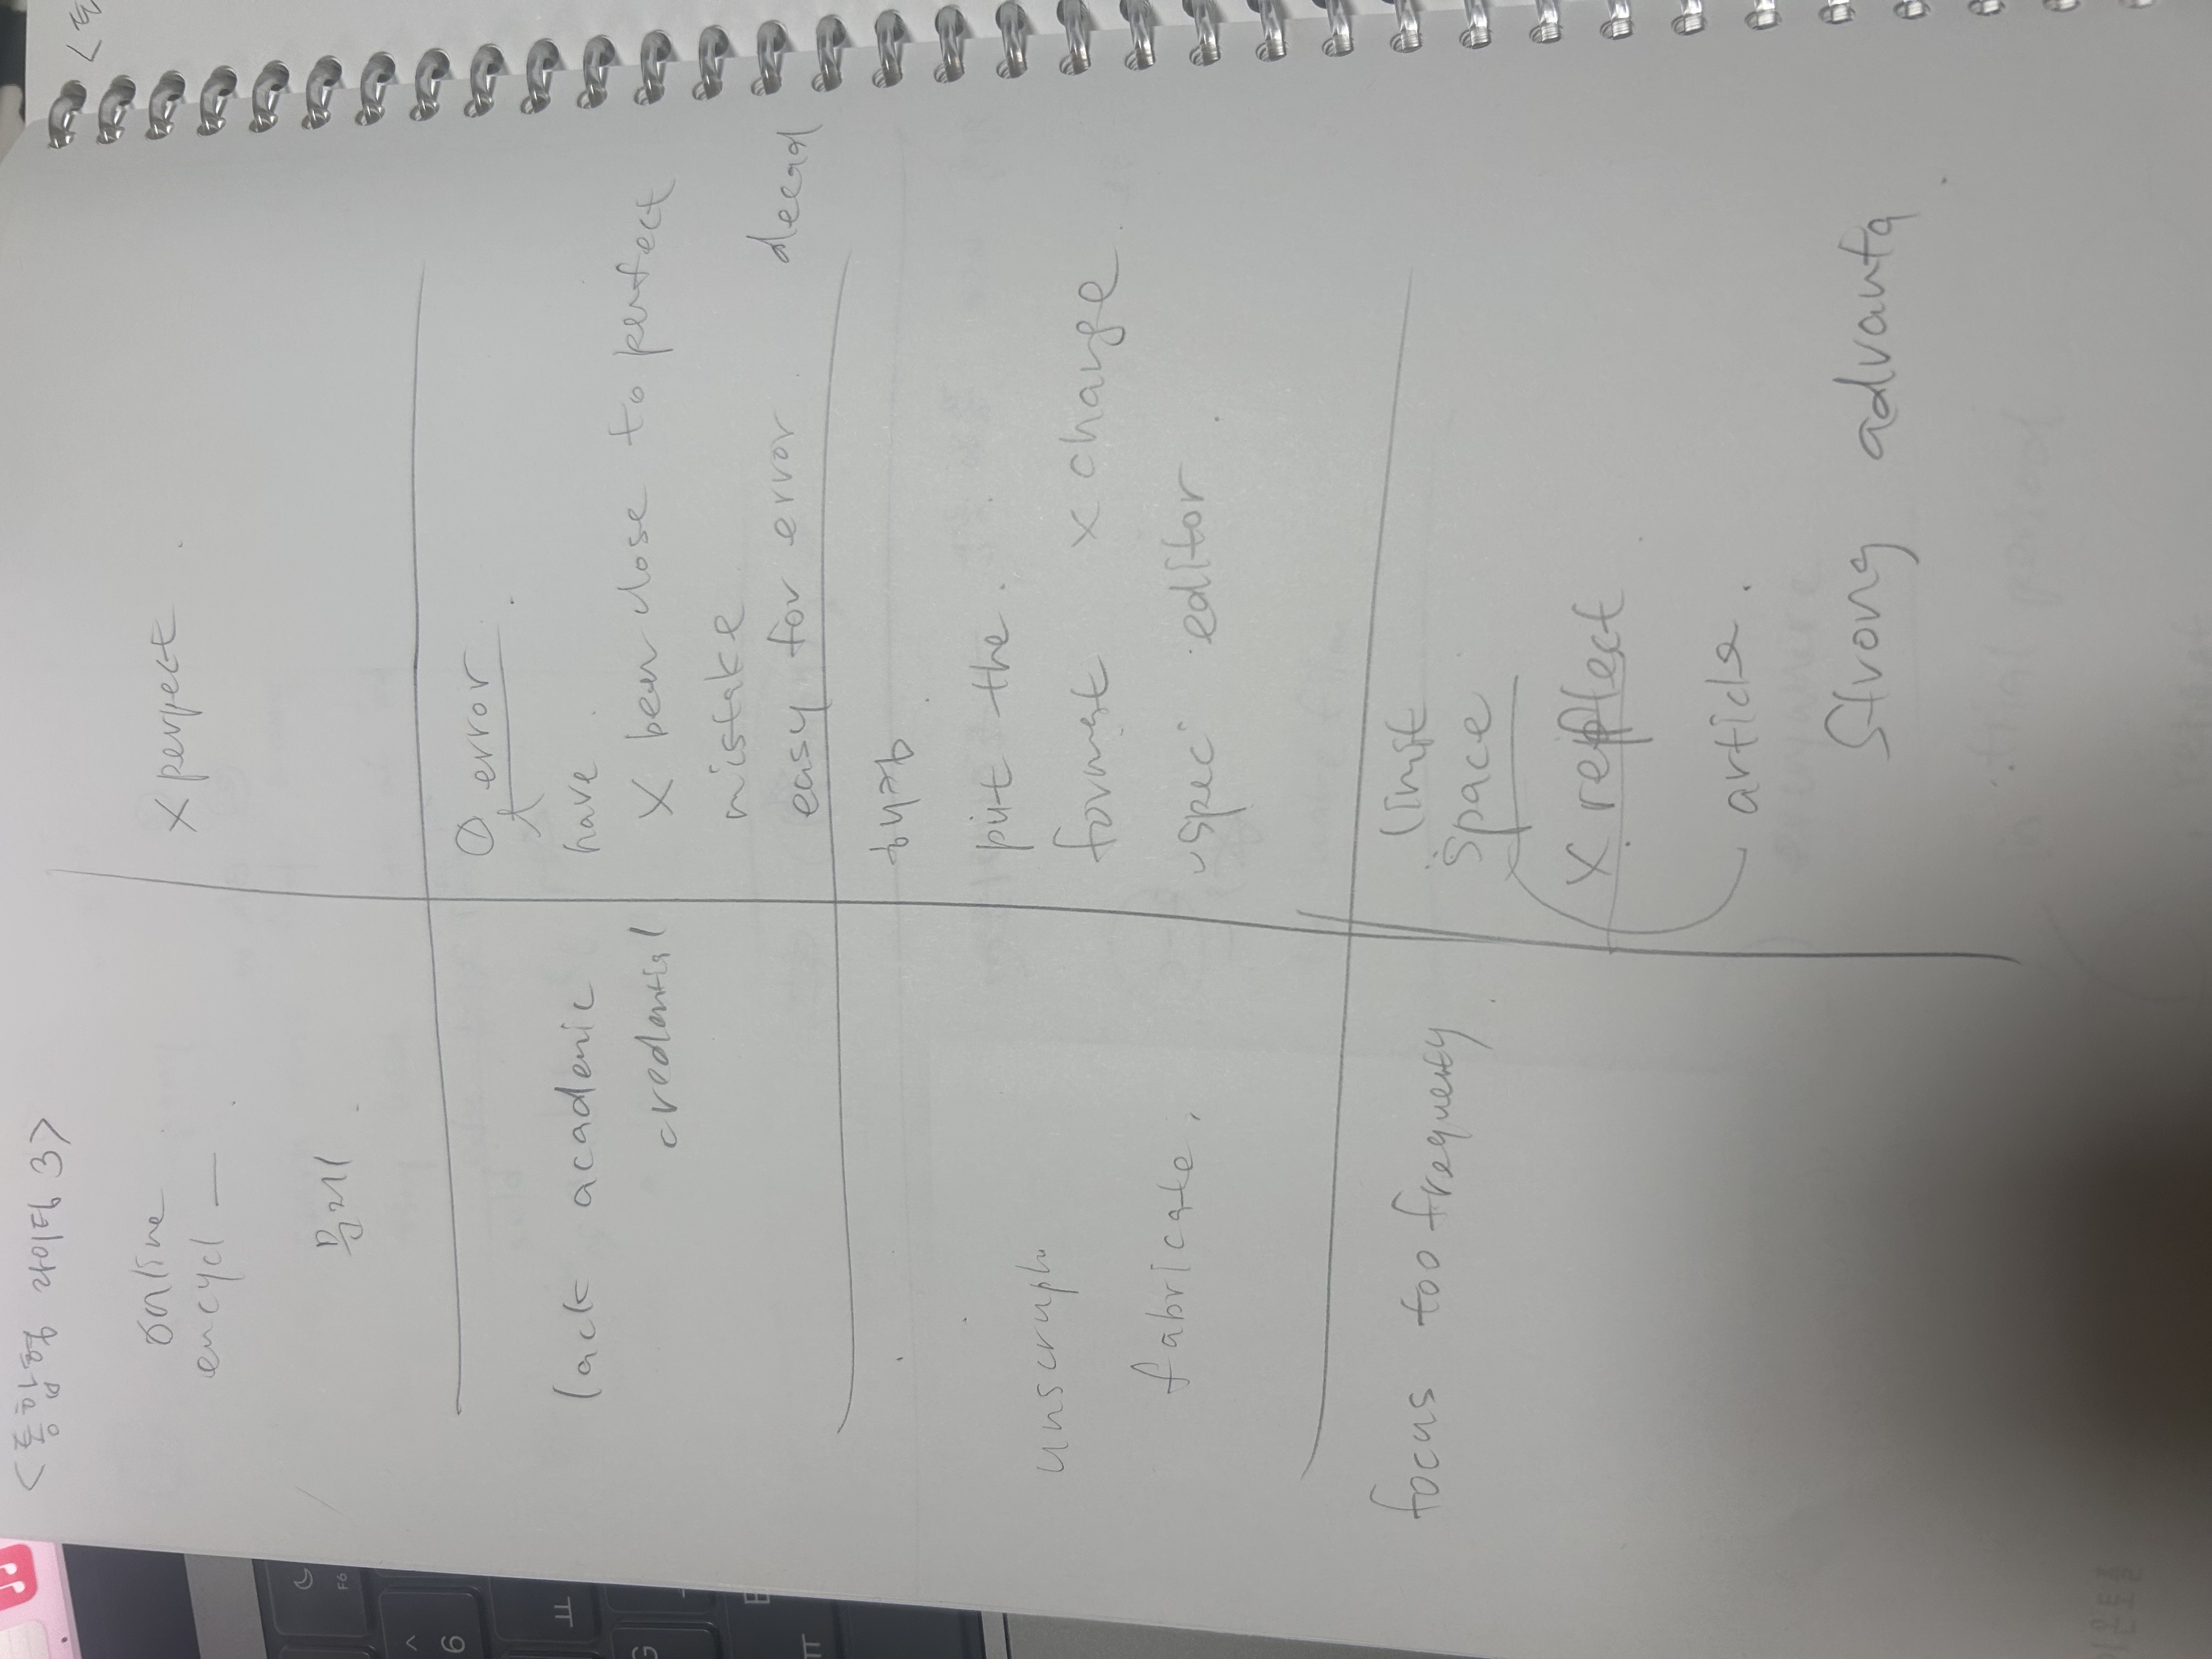 <통합형 라이팅 3>
online
encycl —
문제
X perpect.
lack academic
credential
① error
have
X been close to perfect
mistake
easy for error. decad
방지
unscruph
fabricate,
put the.
formet X change.
spec editor.
focus too frequenty.
limit
space
X reflect
article.
Strong advanta